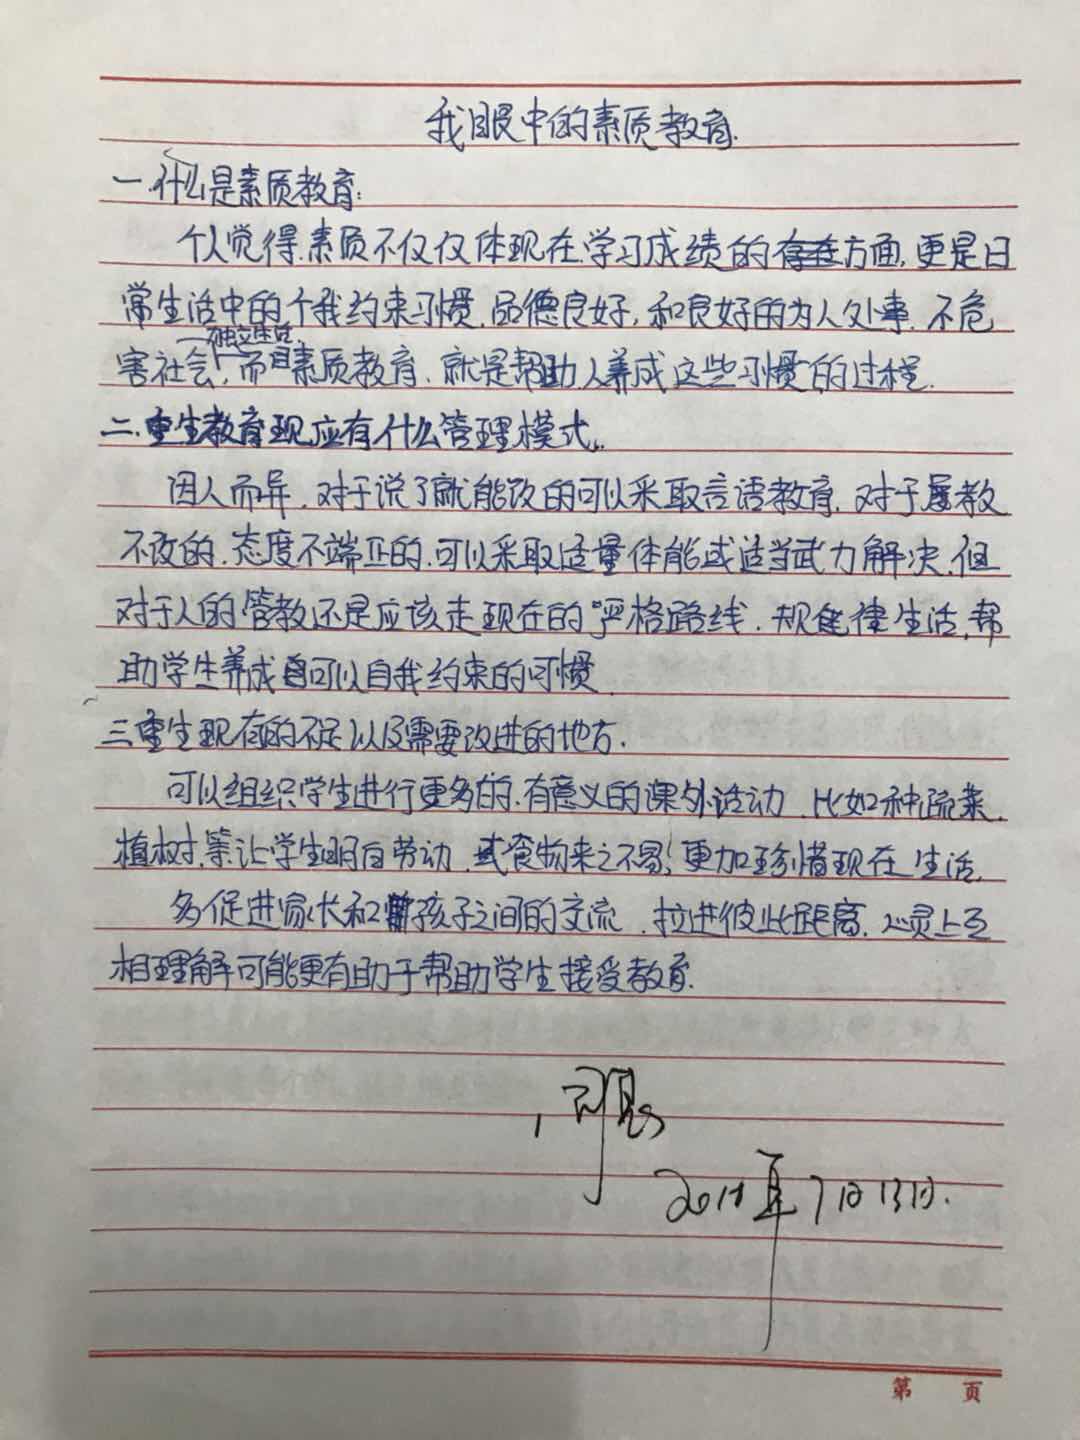 我眼中的素质教育.
一.什么是素质教育:
个人觉得.素质不仅仅体现在学习成绩的方面,更是日
常生活中的个我约束习惯.品德良好,和良好的为人处事.不危
独立生活
害社会,而素质教育.就是帮助人养成这些习惯的过程.
二.重生教育现应有什么管理模式.
因人而异.对于说了就能改的可以采取言语教育.对于屡教
不改的.态度不端正的.可以采取适量体能或适当武力解决.但
对于人的管教还是应该走现在的严格路线.规律生活,帮
助学生养成可以自我约束的习惯.
三重生现有的不足以及需要改进的地方.
可以组织学生进行更多的.有意义的课外活动.比如种蔬菜.
植树,等让学生明白劳动.或食物来之不易!更加珍惜现在生活.
多促进家长和孩子之间的交流.拉进彼此距离.心灵上互
相理解可能更有助于帮助学生接受教育.
年7月13日.
第 页